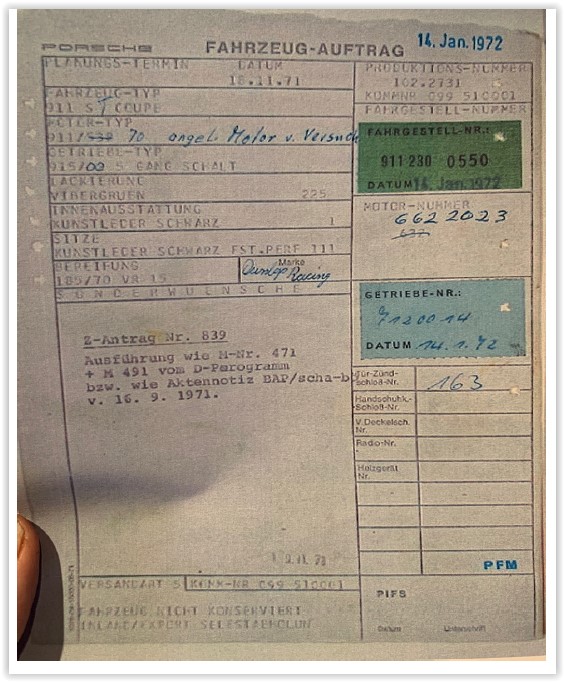 PORSCHE FAHRZEUG-AUFTRAG 14. Jan. 1972
PLANUNGS-TERMIN DATUM
18.11.71
PRODUKTIONS-NUMMER
102.2731
KOMMNR C99 510001
FAHRZEUG-TYP
911 S T COUPE
FAHRGESTELL-NUMMER
MOTOR-TYP
911/ 70 angel. Motor v. Versuch
GETRIEBE-TYP
915/ 5 GANG SCHALT
FAHRGESTELL-NR.:
911 230 0550
DATUM 14. Jan. 1972
LACKIERUNG
VIBERGRUEN 225
INNENAUSSTATTUNG
KUNSTLEDER SCHWARZ 1
MOTOR-NUMMER
662 2023
SITZE
KUNSTLEDER SCHWARZ FST.PERF 111
BEREIFUNG
185/70 VR 15
Marke
Dunlop Racing
SONDERWUENSCHE
GETRIEBE-NR.:
7120014
DATUM 14.1.72
Z-Antrag Nr. 839
Ausführung wie M-Nr. 471
+ M 491 vom D-Parogramm
bzw. wie Aktennotiz BAP/scha-b
v. 16. 9. 1971.
Tür-Zünd-
Schloß-Nr. 163
Handschuhk.-
Schloß-Nr.
V.Deckelsch.
Nr.
Radio-Nr.
Holzgerät
Nr.
PFM
VERSANDART 5 KOMM-NR C99 510001
PIFS
FAHRZEUG NICHT KONSERVIERT
INLAND/EXPORT SELBSTABHOLUN
Datum Unterschrift